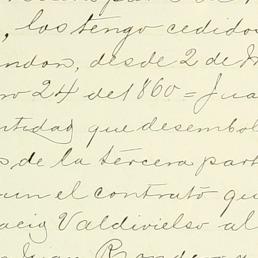 , los tengo cedidos
desde 2 de
24 del 860 = Jua
ntidad que desembol
s de la tercera part
un el contrato qu
acio Valdivielso al
Juan